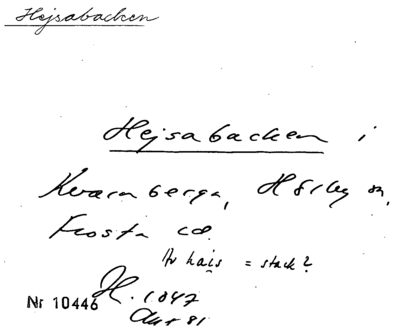 Hejsabacken
Hejsabacken i
Kvarnberga, Hörby sn,
Frosta hd.
Av hais = stack?
Nr 10446 H. 1047